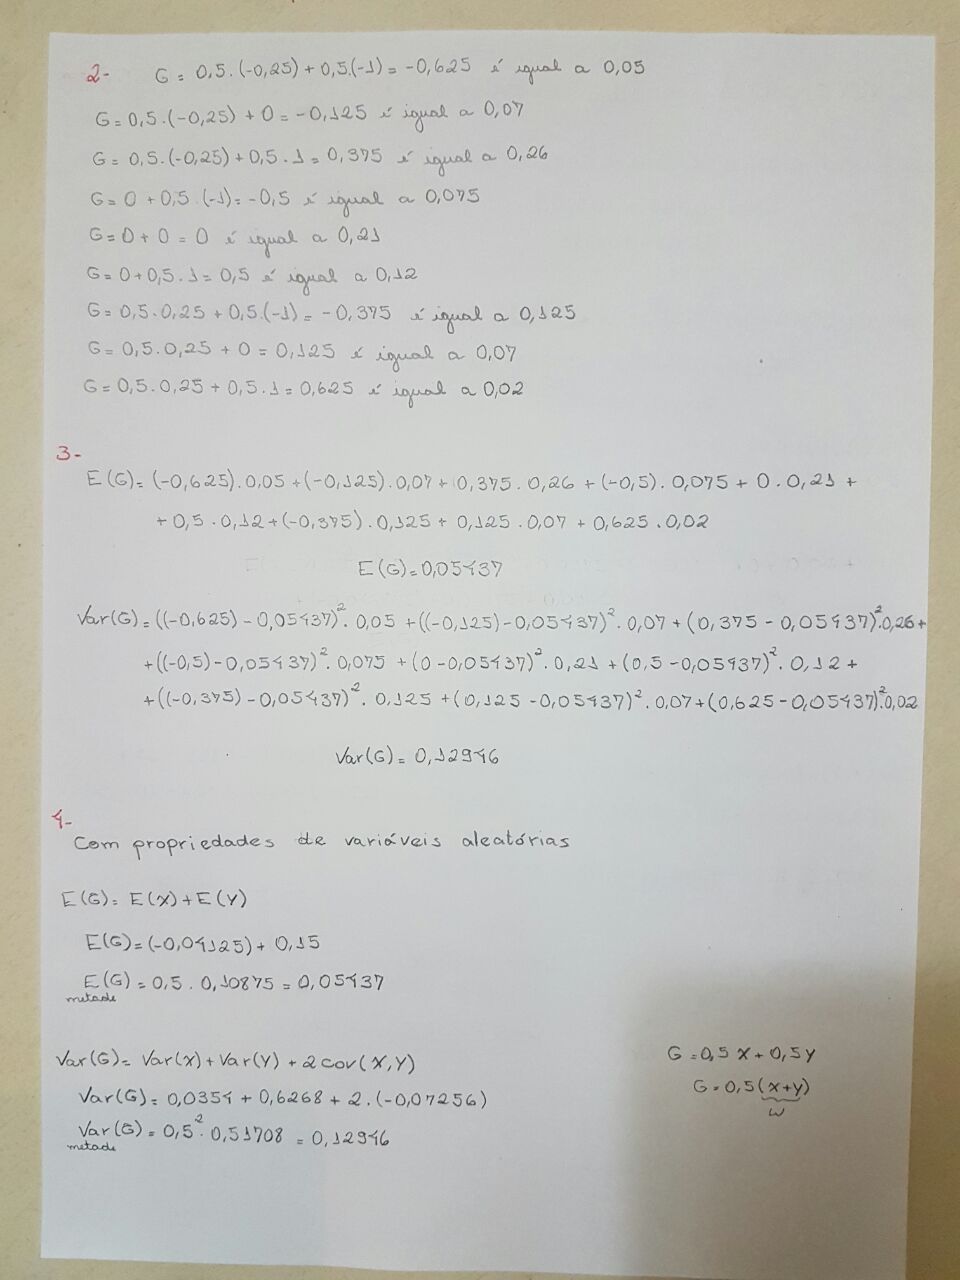 2- G = 0,5.(-0,25) + 0,5.(-1) = -0,625 é igual a 0,05
G = 0,5.(-0,25) + 0 = -0,125 é igual a 0,07
G = 0,5.(-0,25) + 0,5.1 = 0,375 é igual a 0,26
G = 0 + 0,5.(-1) = -0,5 é igual a 0,075
G = 0 + 0 = 0 é igual a 0,21
G = 0 + 0,5.1 = 0,5 é igual a 0,12
G = 0,5.0,25 + 0,5.(-1) = -0,375 é igual a 0,125
G = 0,5.0,25 + 0 = 0,125 é igual a 0,07
G = 0,5.0,25 + 0,5.1 = 0,625 é igual a 0,02
3-
E(G) = (-0,625).0,05 + (-0,125).0,07 + 0,375.0,26 + (-0,5).0,075 + 0.0,21 +
+ 0,5.0,12 + (-0,375).0,125 + 0,125.0,07 + 0,625.0,02
E(G) = 0,05437
Var(G) = ((-0,625) - 0,05437)².0,05 + ((-0,125) - 0,05437)².0,07 + (0,375 - 0,05437)².0,26 +
+ ((-0,5) - 0,05437)².0,075 + (0 - 0,05437)².0,21 + (0,5 - 0,05437)².0,12 +
+ ((-0,375) - 0,05437)².0,125 + (0,125 - 0,05437)².0,07 + (0,625 - 0,05437)².0,02
Var(G) = 0,12946
4-
Com propriedades de variáveis aleatórias
E(G) = E(X) + E(Y)
E(G) = (-0,04125) + 0,15
E(G) = 0,5.0,10875 = 0,05437
metade
Var(G) = Var(X) + Var(Y) + 2cov(X,Y)
Var(G) = 0,0354 + 0,6268 + 2.(-0,07256)
Var(G) = 0,5².0,51708 = 0,12946
metade
G = 0,5X + 0,5Y
G = 0,5(X+Y)
W